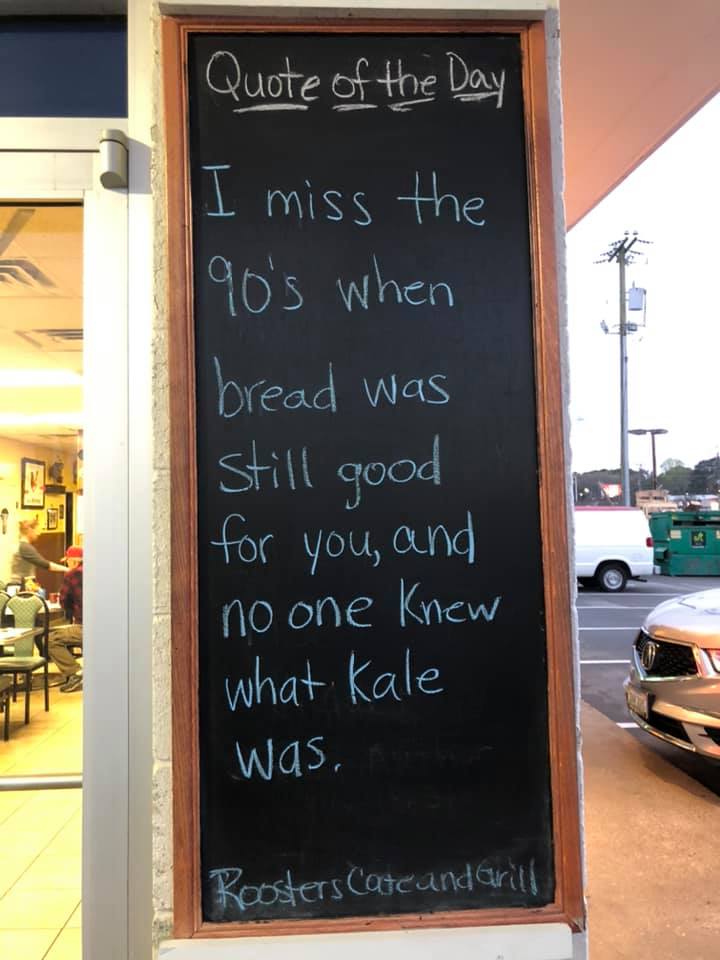 Quote of the Day
I miss the
90's when
bread was
still good
for you, and
no one knew
what kale
was.
Roosters Cafe and Grill